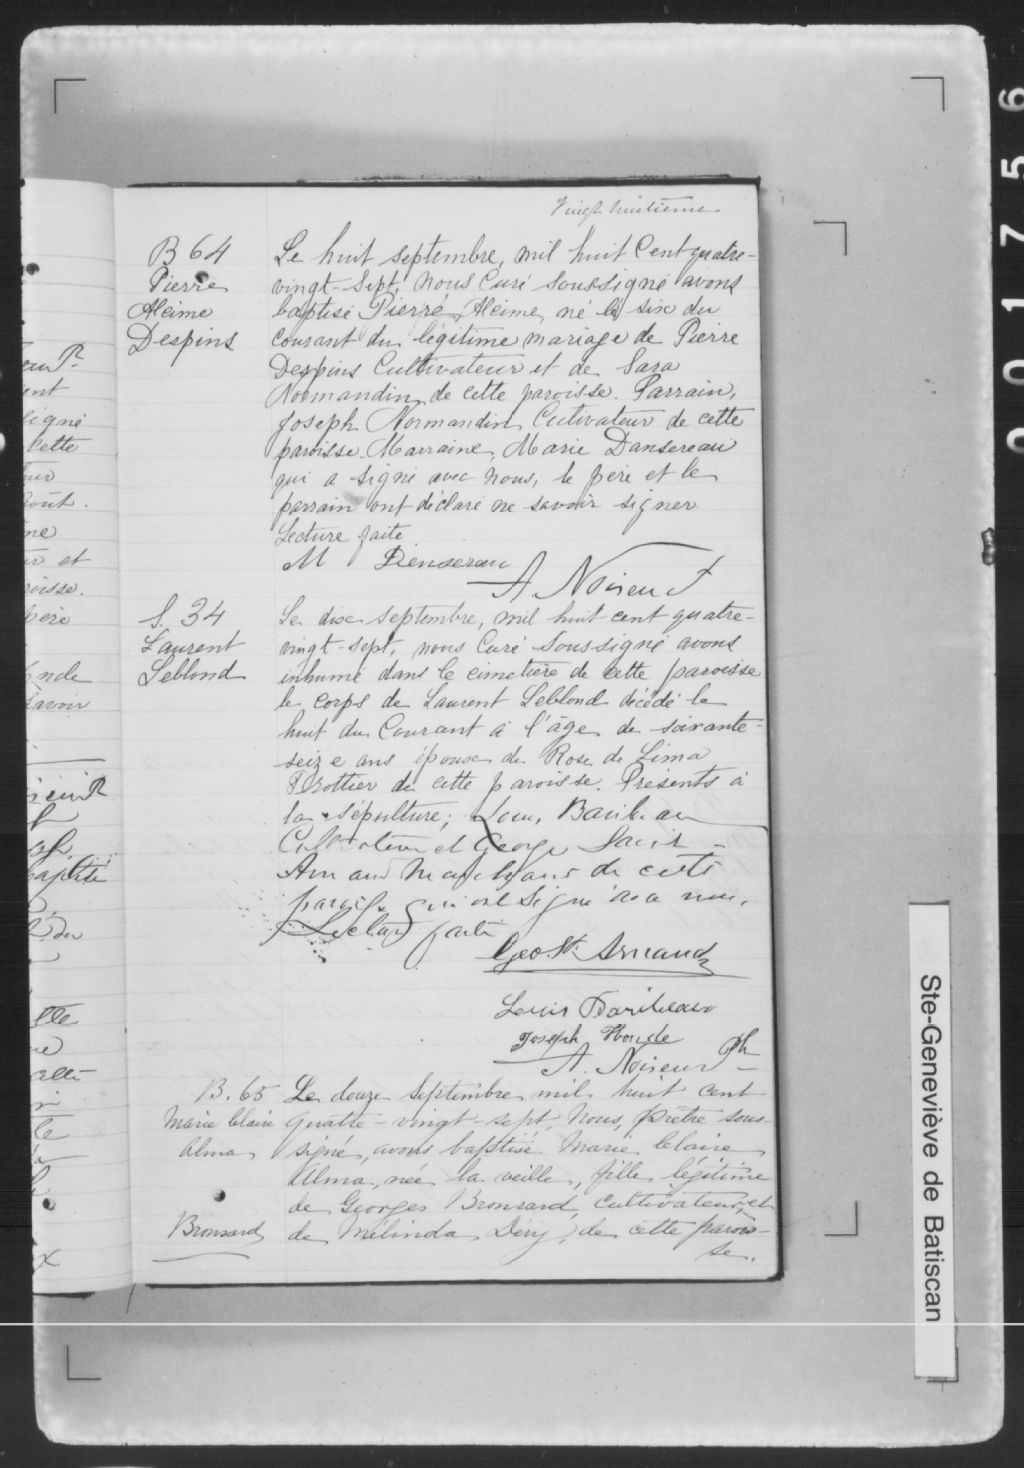 Vingt huitième
B 64
Pierre
Alcime
Despins
Le huit septembre, mil huit cent quatre-
vingt-sept, nous Curé soussigné avons
baptisé Pierre Alcime, né le six du
courant du légitime mariage de Pierre
Despins Cultivateur et de Sara
Normandin de cette paroisse. Parrain,
Joseph Normandin Cultivateur de cette
paroisse. Marraine, Marie Dansereau
qui a signé avec nous; le père et le
parrain ont déclaré ne savoir signer.
Lecture faite
M Densereau
A Noiseux
S. 34
Laurent
Leblond
Le dix septembre, mil huit cent quatre-
vingt-sept, nous Curé soussigné avons
inhumé dans le cimetière de cette paroisse
le corps de Laurent Leblond décédé le
huit du Courant à l'âge de soixante-
seize ans époux de Rose de Lima
Trottier de cette paroisse. Présents à
la sépulture; Louis Baribeau
Cultivateur et George
Arnaud Marchand de cette
paroisse qui ont signé avec nous.
Lecture faite
Geo. Arnaud
Louis Baribeau
Joseph Houde
A. Noiseux Ptre
B. 65
Marie Claire
Alma
Bronsard
Le douze Septembre mil huit cent
quatre-vingt-sept, Nous, Prêtre sous-
signé, avons baptisé Marie Claire
Alma, née la veille, fille légitime
de Georges Bronsard, cultivateur, et
de Mélinda Déry, de cette parois-
se.
ent
signé
cette
oût.
ne
et
roisse.
père
avoir
Ste-Geneviève de Batiscan
001756